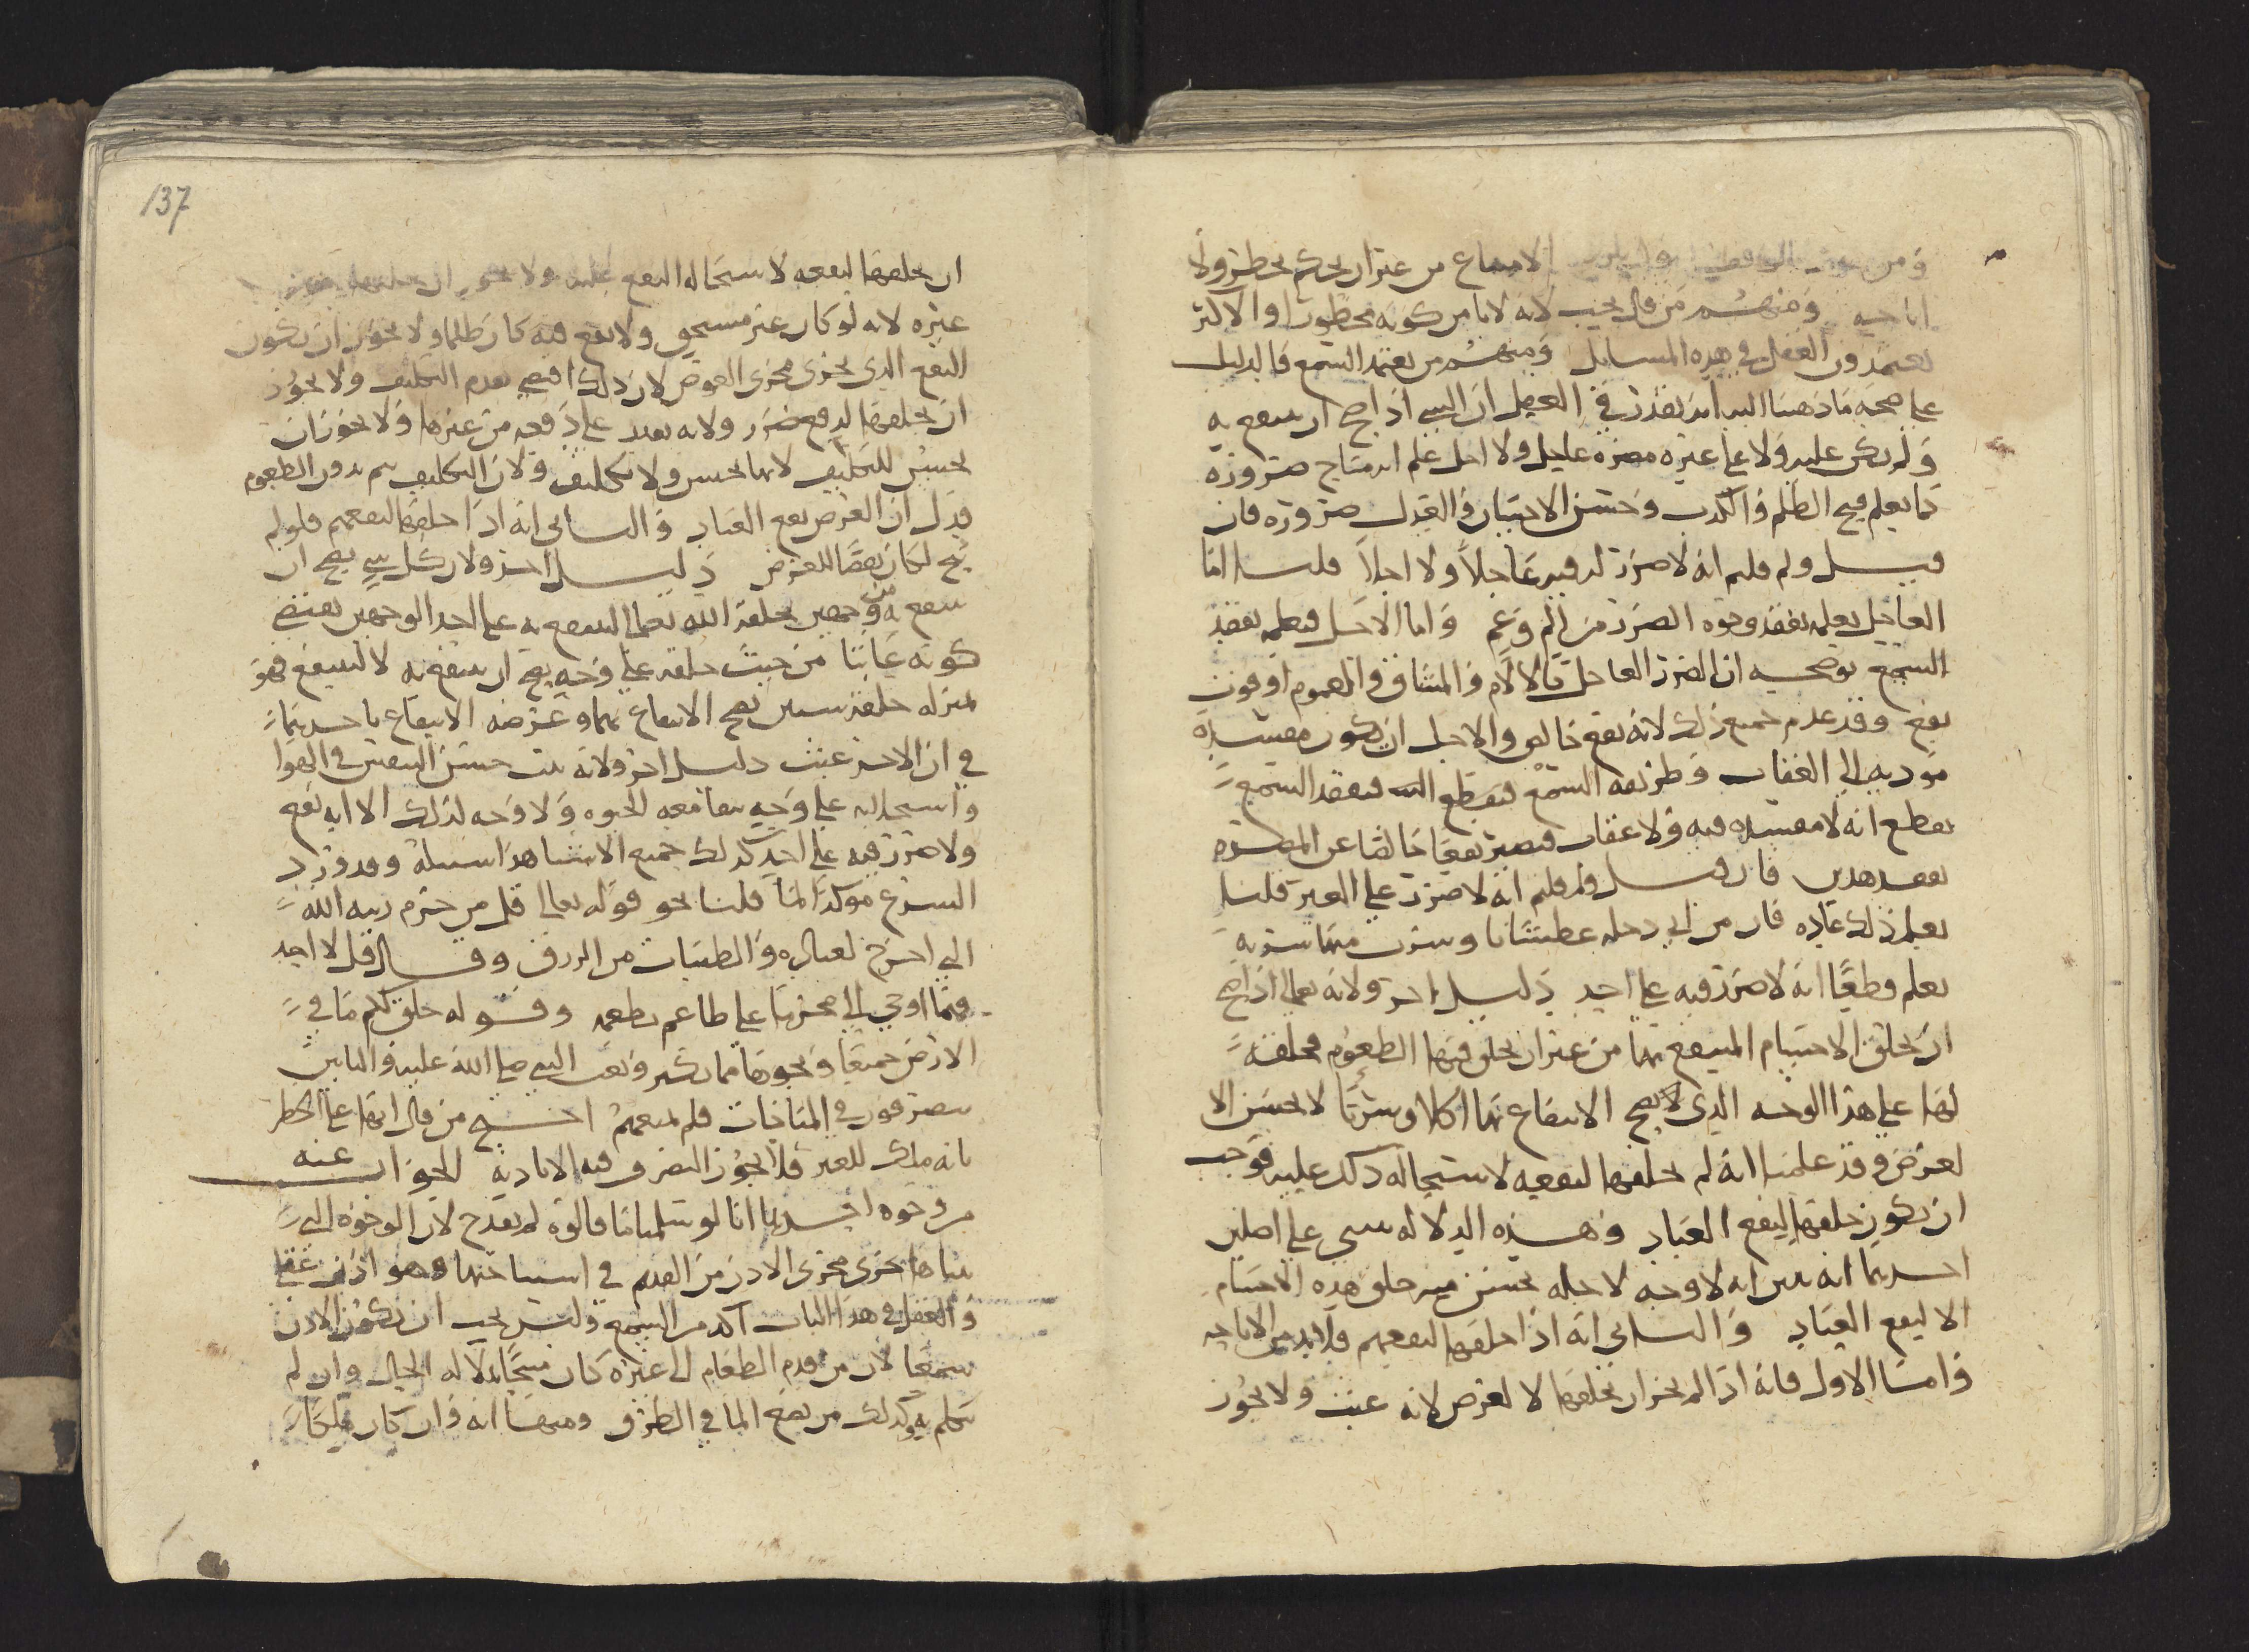 الامتناع من غير ان يحكم بحظر ولا
اباحه ومنهم من قال يجب لانه لا يامن كونه محظورا والاكثر
يعتمدون العقل في هذه المسايل ومنهم من يعتمد السمع فالدليل
على صحة ما ذهبنا اليه انه تقرر في العقل ان الشي اذا صح ان ينتفع به
ولم يكن عليه ولا على غيره مضرة عاجل ولا اجل علم انه مباح ضرورة
كما يعلم قبح الظلم والكذب وحسن الاحسان والعدل ضرورة فان
قيل ولم قلتم انه لا ضرر فيه عاجلا ولا اجلا قلنا اما
العاجل يعلم بفقد وجوه الضرر من الم وغم واما الاجل فيعلم بفقد
السمع يوضحه ان الضرر العاجل كالالام والمشاق والغموم او فوت
نفع وقد عدم جميع ذلك لانه نفع خالص والاجل ان يكون مفسدة
مودية الى العقاب وطريقه السمع فيقطع بفقد السمع
يقطع انه لا مفسدة فيه ولا عقاب فيصير نفعا خالصا عن المضرة
بفقد هذين فان قيل ولم قلتم انه لا ضرر على الغير قلنا
يعلم ذلك عادة فان من اتى دجلة عطشانا وشرب منها شربة
يعلم قطعا انه لا ضرر فيه على احد دليل اخر ولانه تعالى اذا صح
ان يخلق الاجسام المنتفع بها من غير ان يخلق فيها الطعوم فخلقه
لها على هذا الوجه الذي لا يصح الانتفاع بها اكلا وشربا لا يحسن الا
لغرض وقد علمنا انه لم يخلقها لنفعه لاستحالة ذلك عليه فوجب
ان يكون خلقها لينفع العباد وهذه الدلالة تبنى على اصلين
احدهما انه يبين انه لا وجه لاجله يحسن منه خلق هذه الاجسام
الا لينفع العباد والثاني انه اذا خلقها لنفعهم فلا بد من الاباحه
فاما الاول فانه اذا لم يجز ان يخلقها لا لغرض لانه عبث ولا يجوز
137
ان يخلقها لنفعه لاستحالة النفع عليه ولا يجوز ان يخلقها
غيره لانه لو كان غير مستحق ولا نفع فيه كان ظلما ولا يجوز ان يكون
النفع الذي يجري مجرى العوض لان ذلك تقدم التكليف ولا يجوز
ان يخلقها لدفع ضرر ولانه يقدر على دفعه من غيرها ولا يجوز ان
يحسن للتكليف لانها تحسن ولا تكليف ولان التكليف يتم بدون الطعوم
فدل ان الغرض نفع العباد والثاني انه اذا خلقها لنفعهم فلو لم
يبح لكان نقضا للغرض دليل اخر ولان كل شي يصح ان
ينتفع به من وجهين بخلقه الله تعالى لينتفع به على احد الوجهين يقتضي
كونه عابثا من حيث خلقه على وجه يصح ان ينتفع به لا لينتفع فهو
بمنزلة خلقه شيين يصح الانتفاع بهما وغرضه الانتفاع باحدهما
في ان الاخر عبث دليل اخر ولانه يثبت حسن التنفس في الهوا
على وجه معه الحيوه ولا وجه لذلك الا انه نفع
ولا ضرر فيه على احد كذلك جميع الاشيا هذا سبيله وقد ورد
الشرع موكدا لما قلنا نحو قوله تعالى قل من حرم زينه الله
التي اخرج لعباده والطيبات من الرزق وقال قل لا اجد
فيما اوحي الي محرما على طاعم يطعمه وقوله خلق لكم ما في
الارض جميعا ونحوها مما يكثر وبعث النبي صلى الله عليه والناس
يتصرفون في المباحات فلم يمنعهم احتج من قال انها على الحظر
بانه ملك للغير فلا يجوز التصرف فيه الا باذنه الجواب عنه
من وجوه احدها انا لو سلمنا ما قالوه لم يقدح لان الوجوه التي
بيناها تجري مجرى الاذن من القديم في استباحتها وهو اذن عقلي
والعقل في هذا الباب اكد من السمع وليس يجب ان يكون الاذن
سمعا لان من قدم الطعام الى غيره كان مبيحا بدلاله الحال وان لم
يتكلم به وكذلك من يضع الما في الطرق ومنها انه وان كان ملكا